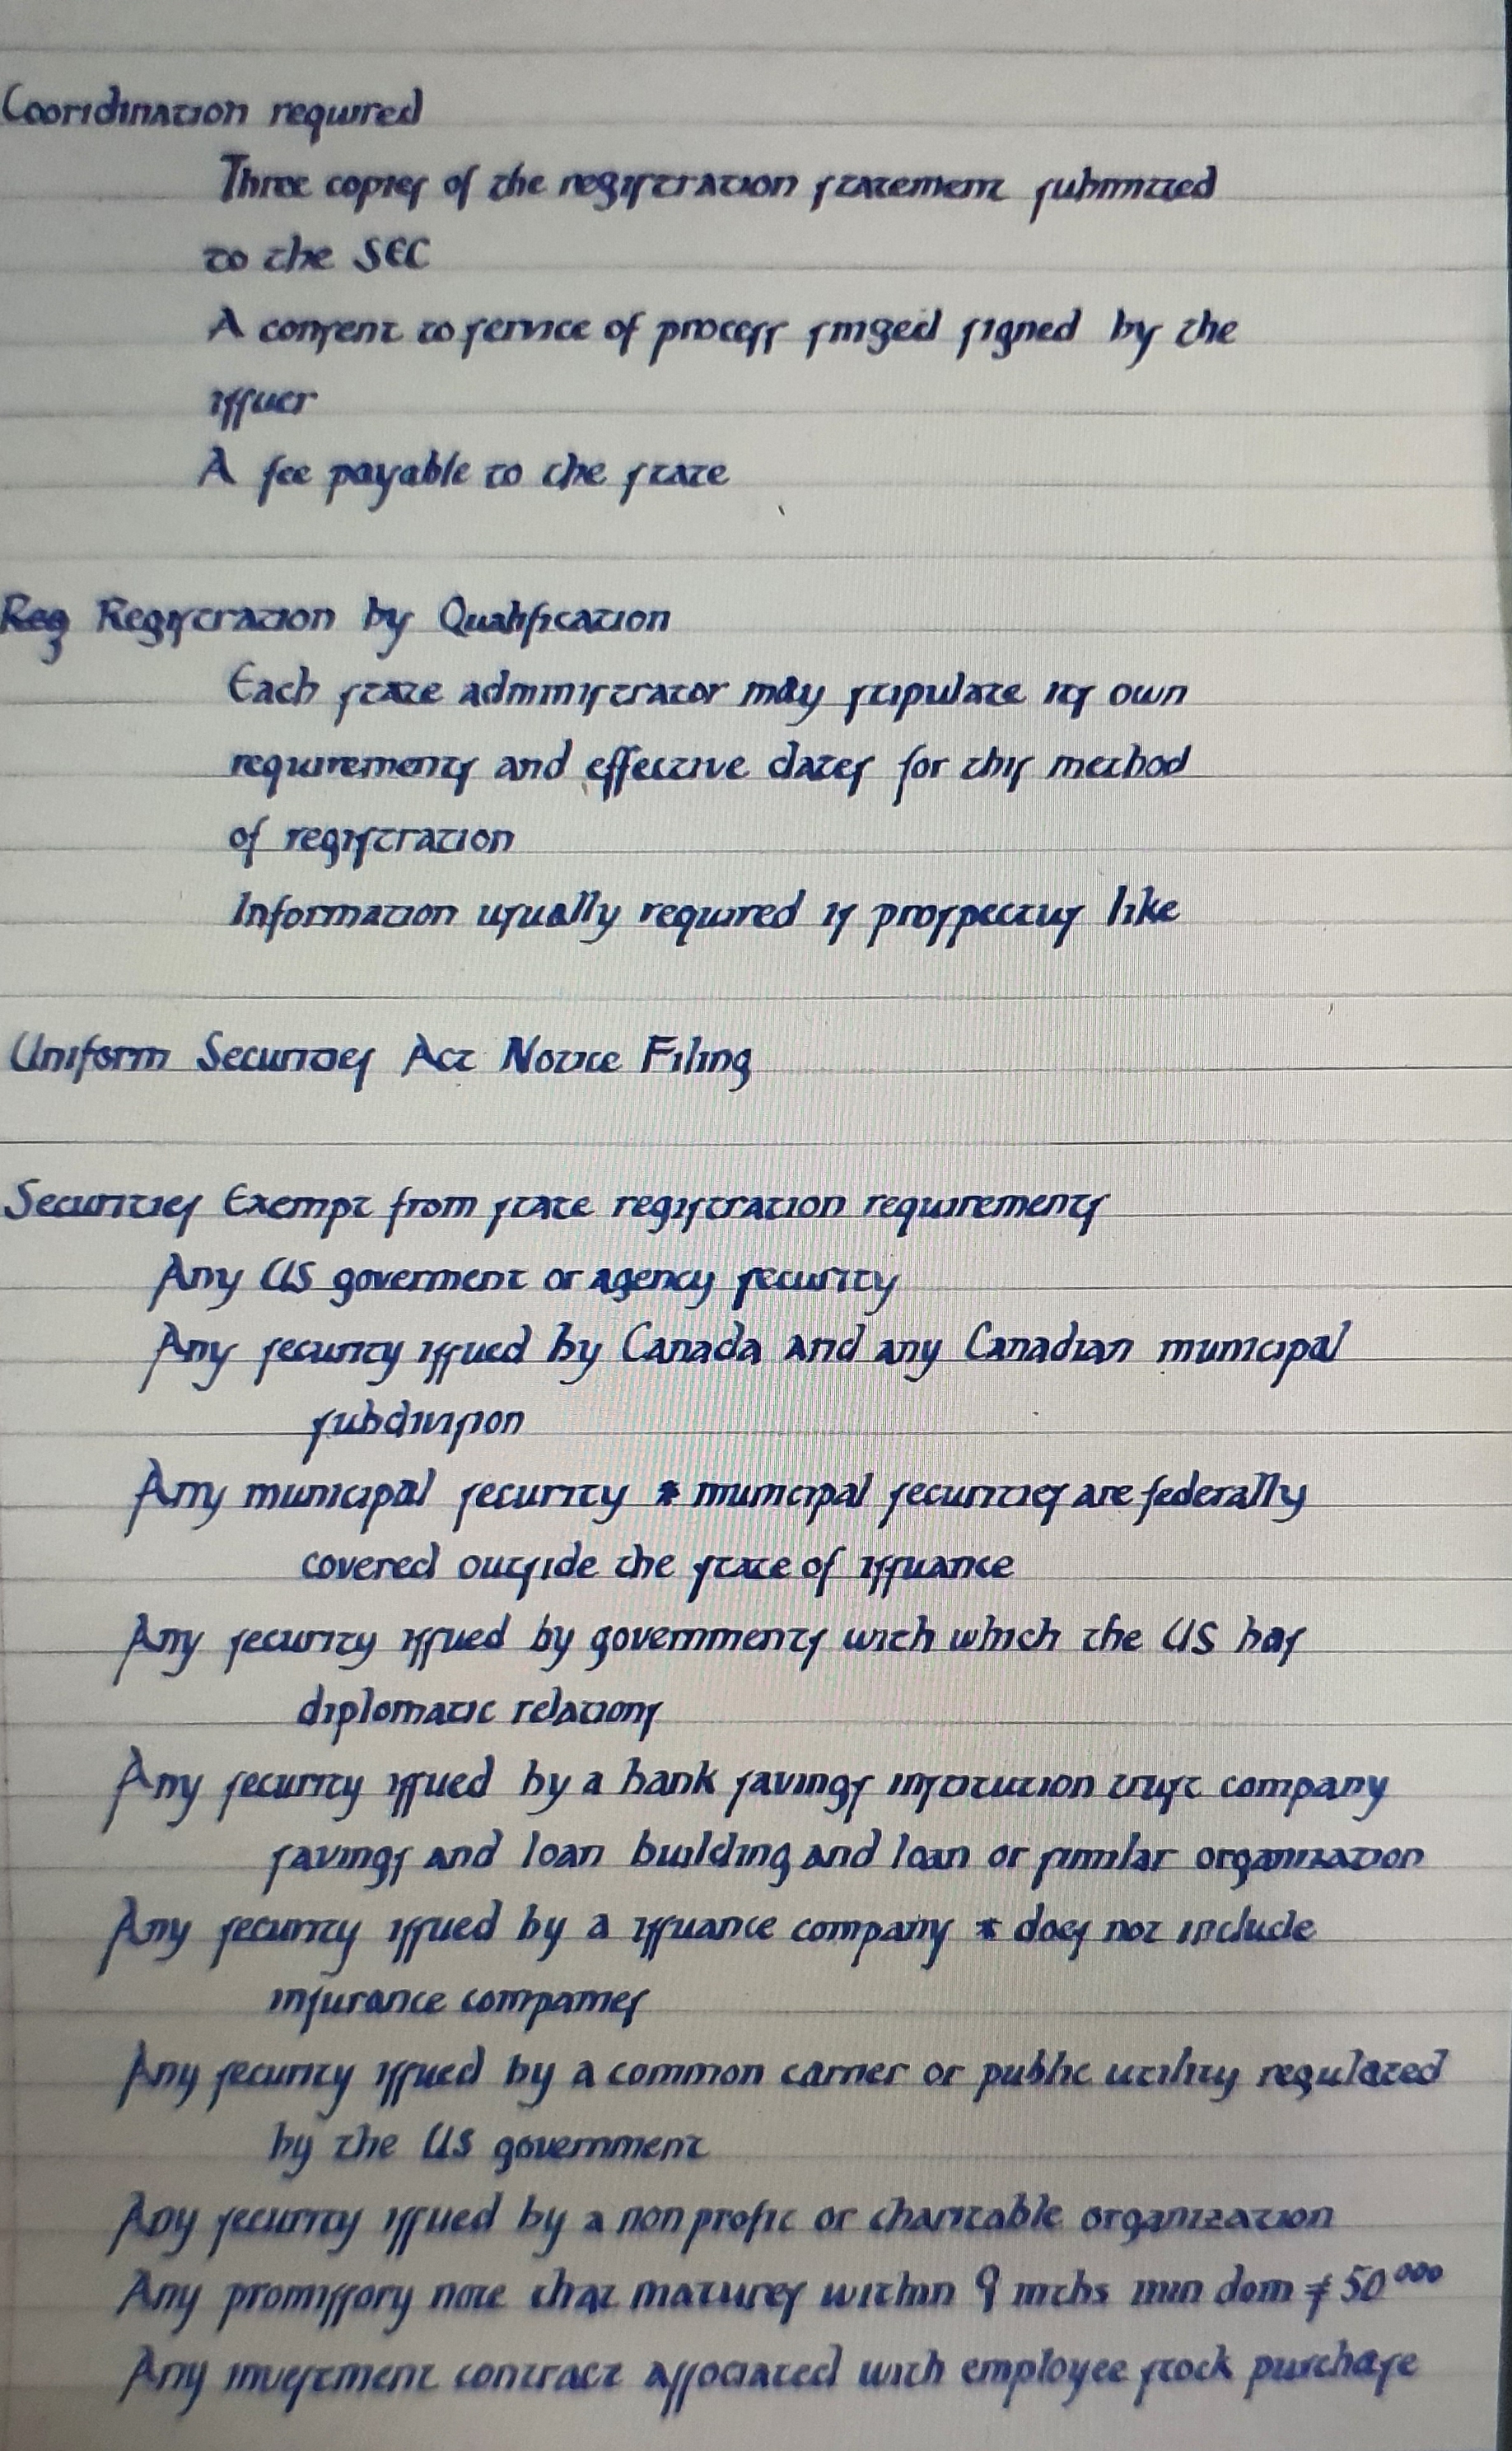 Cooridination required
Three copies of the registration statement submitted
to the SEC
A consent to service of process singed signed by the
issuer
A fee payable to the state
Reg Registration by Qualification
Each state administrator may stipulate its own
requirements and effective dates for this method
of registration
Information usually required is prospectus like
Uniform Securities Act Notice Filing
Securities Exempt from state registration requirements
Any US goverment or agency security
Any security issued by Canada and any Canadian municipal
subdivision
Any municipal security * municipal securities are federally
covered outside the state of issuance
Any security issued by governments with which the US has
diplomatic relations
Any security issued by a bank savings institution trust company
savings and loan building and loan or similar organization
Any security issued by a issuance company * does not include
insurance companies
Any security issued by a common carrier or public utility regulated
by the US government
Any security issued by a non profit or charitable organization
Any promissory note that matures within 9 mths min dom $50000
Any investment contract associated with employee stock purchase